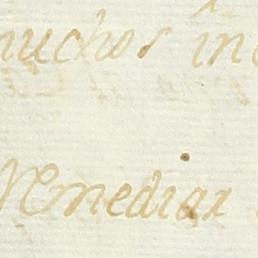 muchos in
Remediar